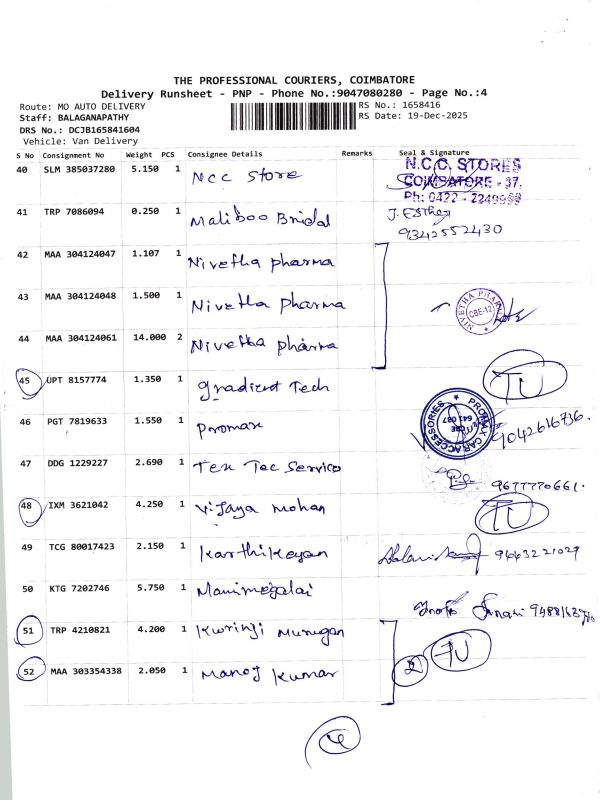 THE PROFESSIONAL COURIERS, COIMBATORE
Delivery Runsheet - PNP - Phone No.:9047080280 - Page No.:4
Route: MO AUTO DELIVERY RS No.: 1658416
Staff: BALAGANAPATHY RS Date: 19-Dec-2025
DRS No.: DCJB165841604
Vehicle: Van Delivery
S No Consignment No Weight PCS Consignee Details Remarks Seal & Signature
40 SLM 385037280 5.150 1 NCC Store N.C.C. STORES
COIMBATORE - 37.
Ph: 0422 - 2249999
41 TRP 7086094 0.250 1 Maliboo Bridal J. Esther
9342552430
42 MAA 304124047 1.107 1 Nivetha pharma
43 MAA 304124048 1.500 1 Nivetha pharma NIVETHA PHARMA CBE-12
44 MAA 304124061 14.000 2 Nivetha pharma
45 UPT 8157774 1.350 1 gradient Tech TU
46 PGT 7819633 1.550 1 promax PROMAX CAR ACCESSORIES CBE 641 037 9042616736.
47 DDG 1229227 2.690 1 Tex Tec Service 9677770661.
48 IXM 3621042 4.250 1 Vijaya mohan TU
49 TCG 80017423 2.150 1 Karthikeyan 9443221029
50 KTG 7202746 5.750 1 Manimegalai
51 TRP 4210821 4.200 1 Kurinji Murugan TU
52 MAA 303354338 2.050 1 Manoj Kumar 2
4